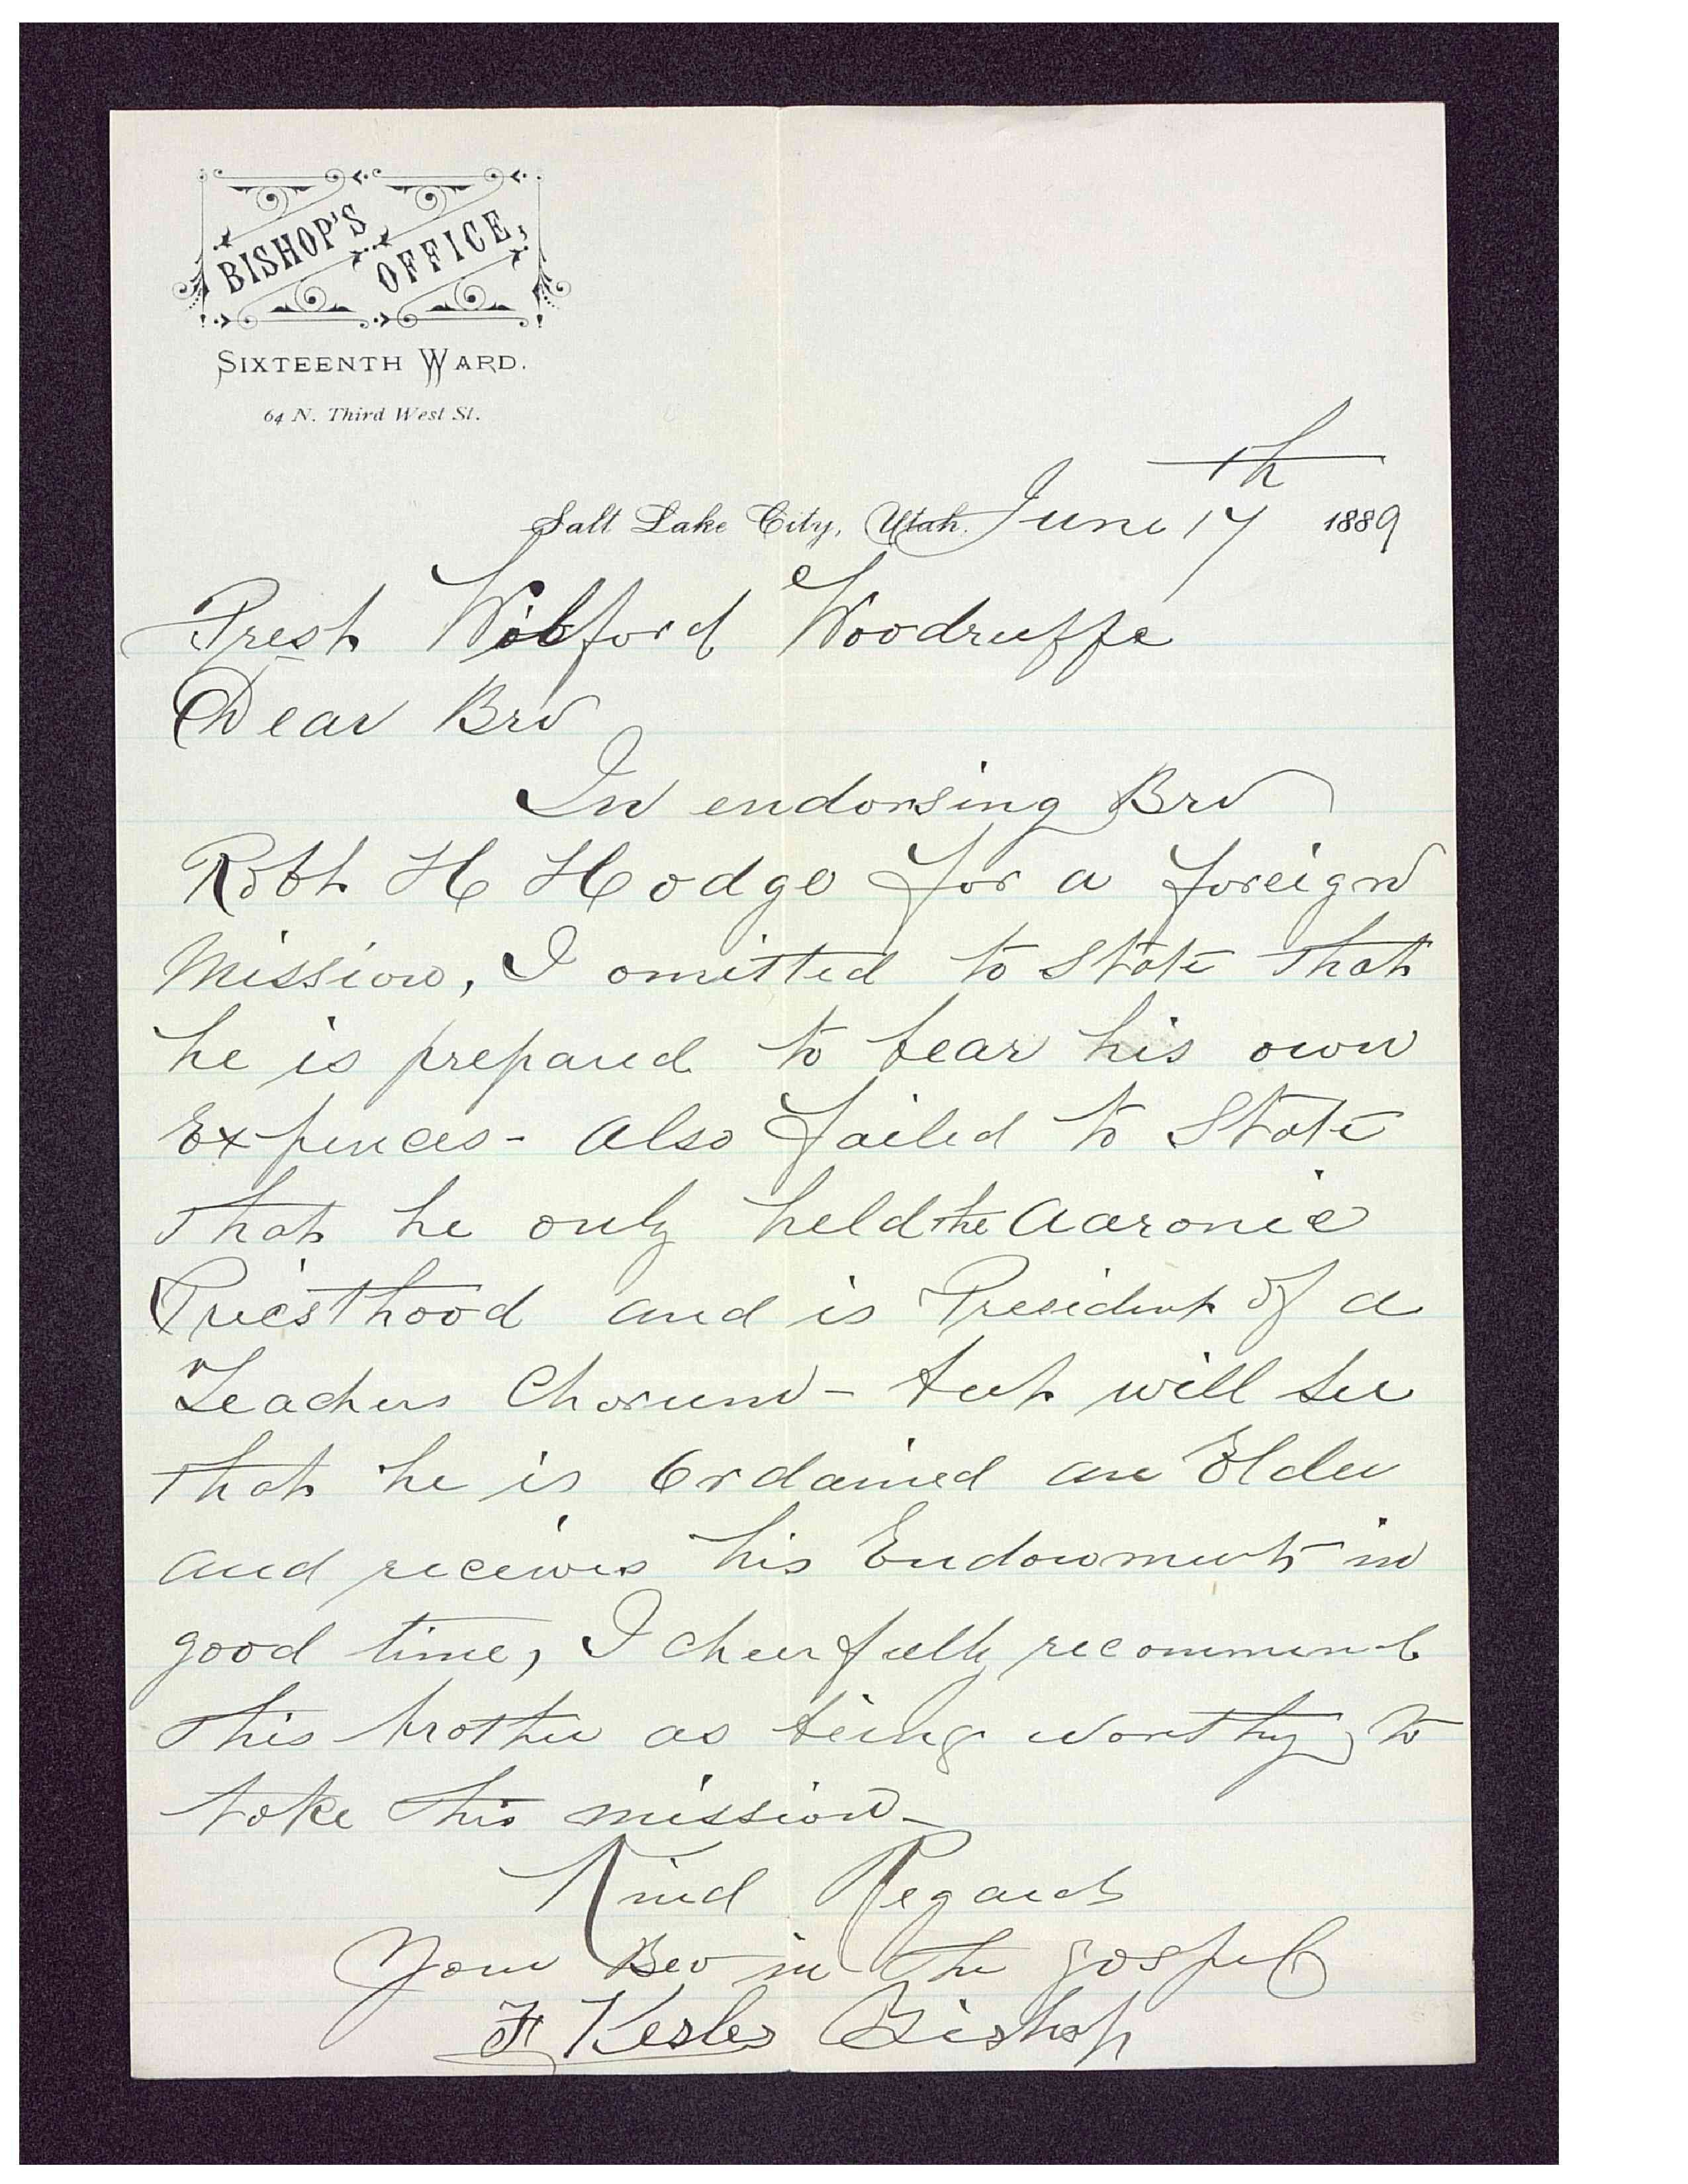 BISHOP'S OFFICE,
SIXTEENTH WARD.
64 N. Third West St.
Salt Lake City, Utah. June 17th 1889
Prest Wilford Woodruffe
Dear Bro
In endorsing Bro
Robt H Hodge for a foreign
Mission, I omitted to State that
he is prepared to bear his own
Expences - also failed to State
that he only held the Aaronic
Priesthood and is President of a
Teachers Chorum - but will see
that he is Ordained an Elder
and receives his Endowments in
good time, I cheerfully recommend
this brother as being worthy to
take this mission -
Kind Regards
Your Bro in the gospel
F Kesler Bishop